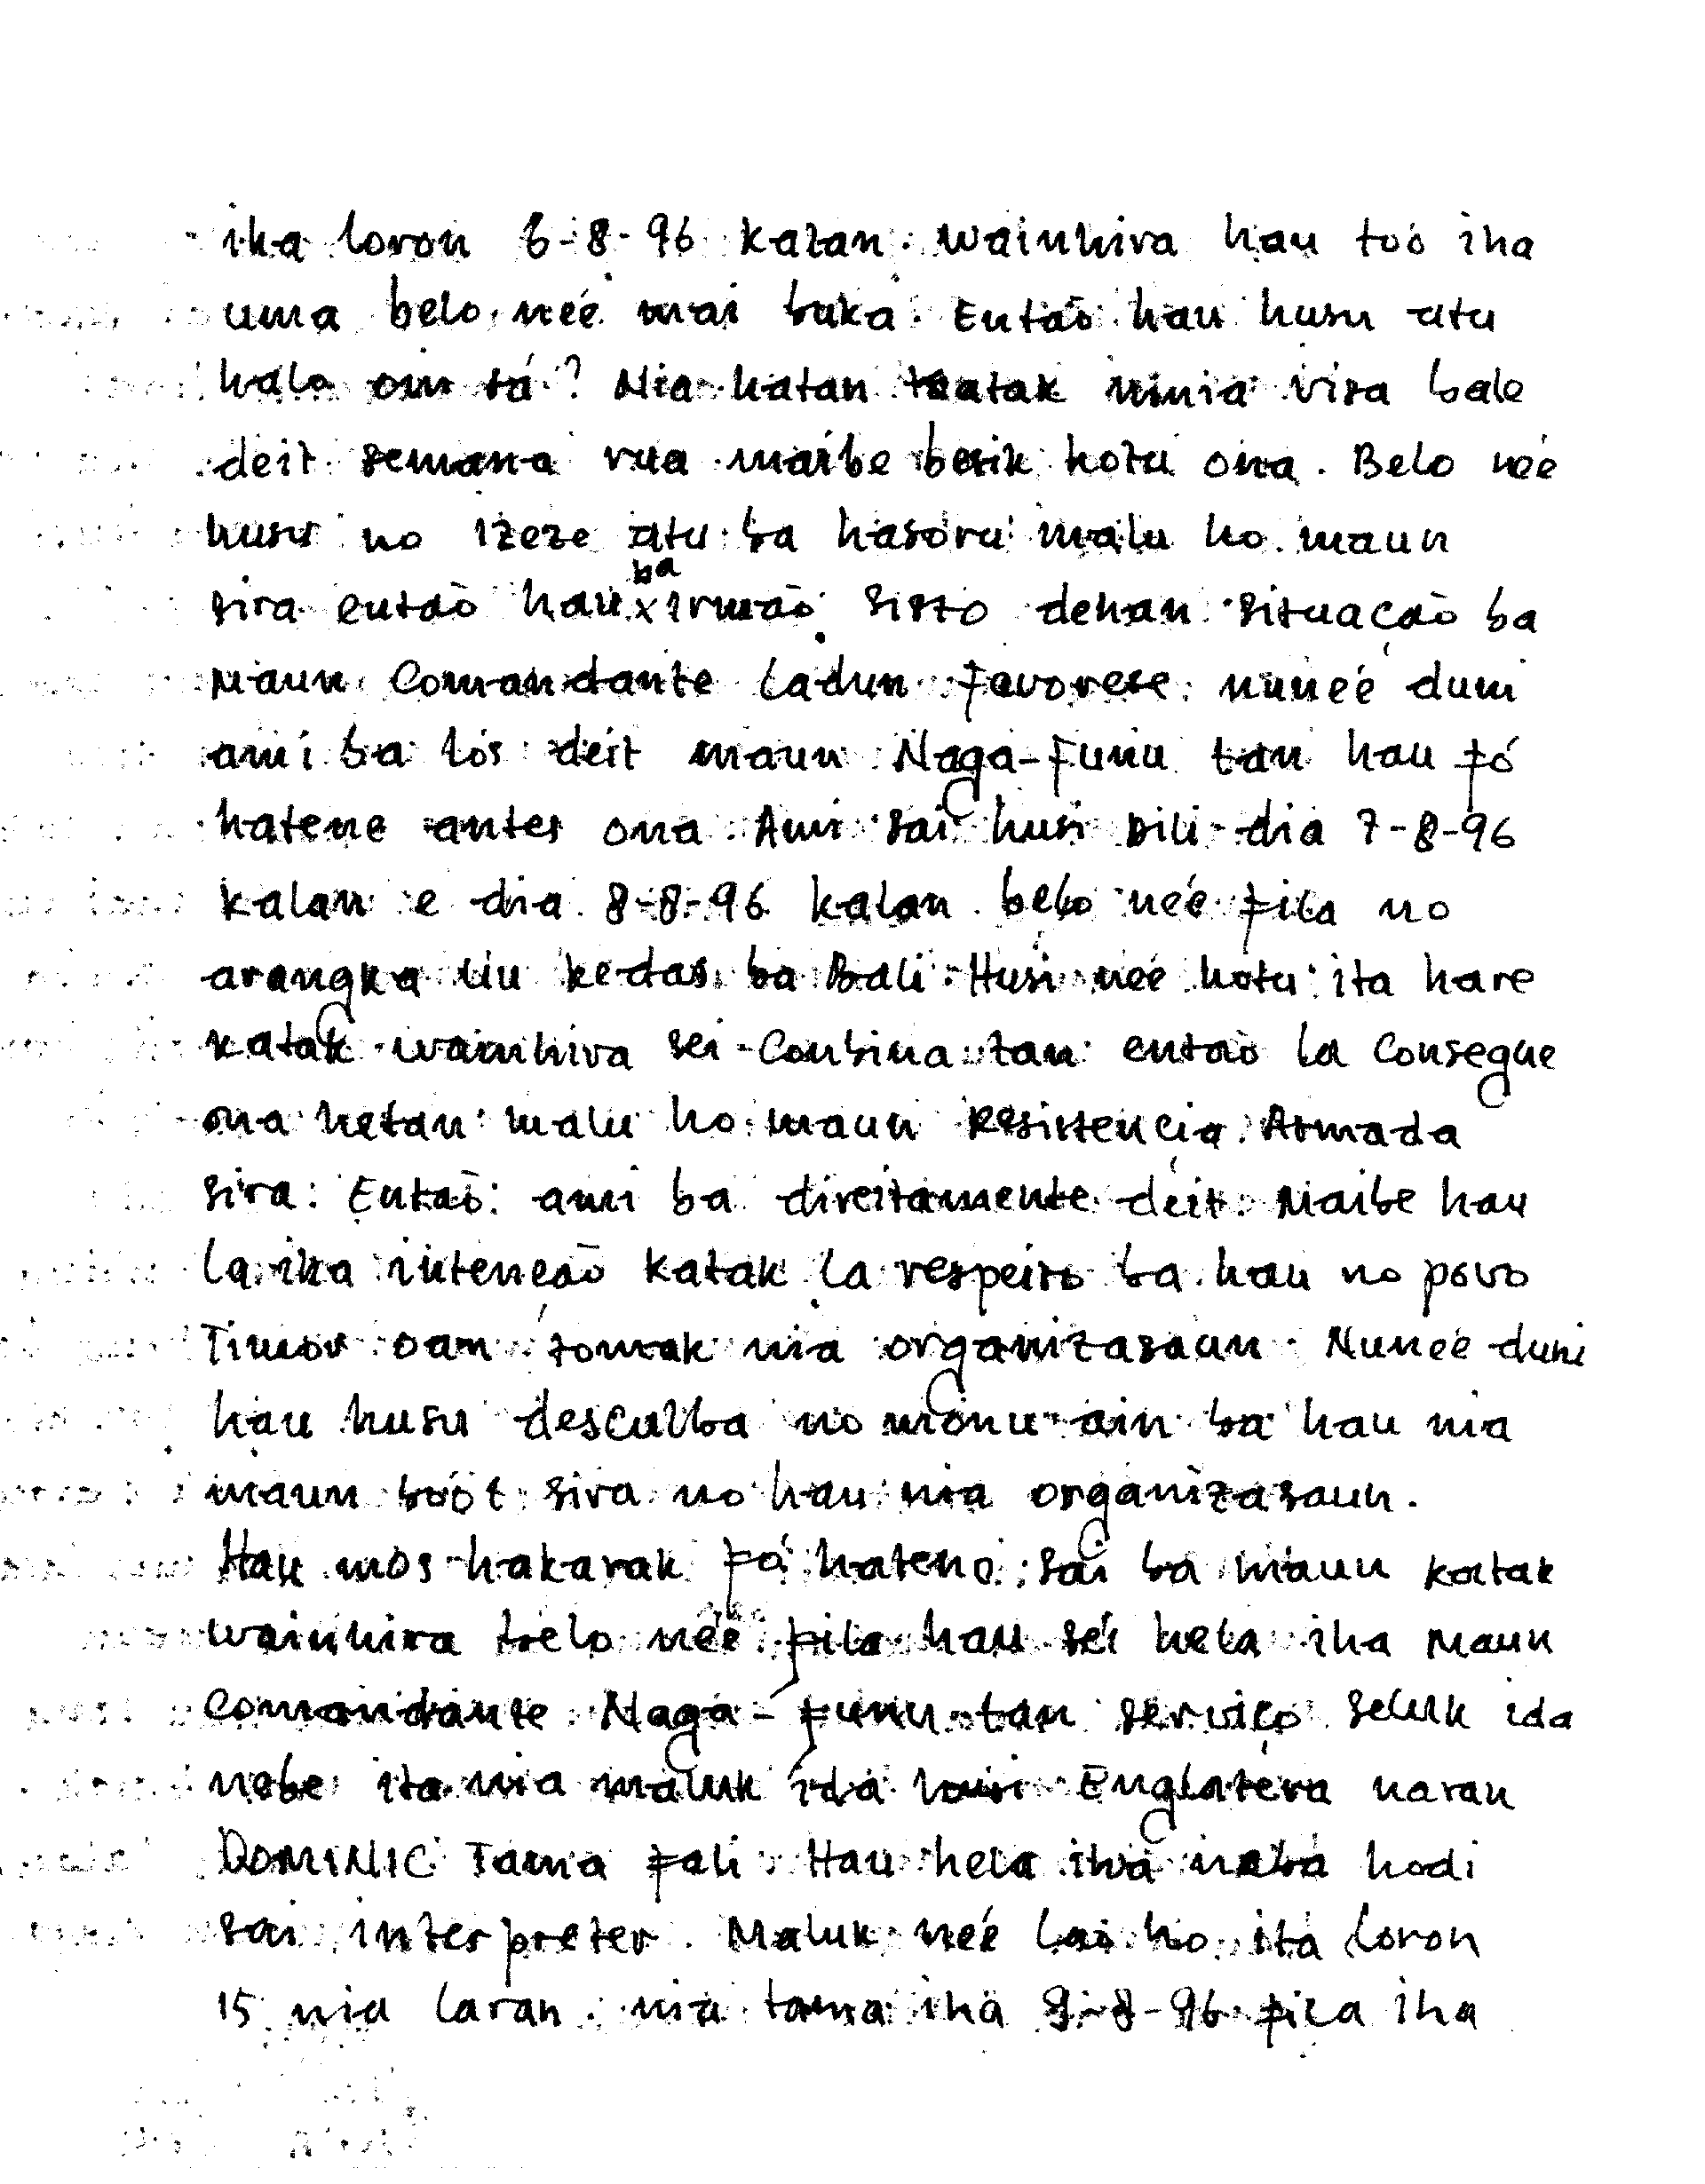 iha loron 6-8-96 kalan. Wainhira hau toó iha
uma belo neé mai buka. Entaõ hau husu atu
halo oin sá? Nia hatan katak ninia visa bale
deit semana rua maíbe besik hotu ona. Belo neé
husu no ezeze atu ba hasoru malu ho maun
sira entaõ hau ba irmaõ Sisto dehan situaçaõ ba
Maun Comandante Ladun favorese nuneé duni
ami ba lós deit maun Naga-Funu tan hau fó
hatene antes ona. Ami sai husi Dili dia 7-8-96
kalan e dia 8-8-96 kalan belo neé fila no
arangka liu kedas ba Bali. Husi neé hotu ita hare
katak wainhira sei Conbina tan entaõ la Consegue
ona hetan malu ho maun Resistençia Armada
sira. Entaõ ami ba direitamente deit. Maibe hau
la iha intençaõ katak la respeito ba hau no povo
Timor oan tomak nia organizasaun. Nuneé duni
hau husu desculba no monu ain ba hau nia
maun boót sira no hau nia organizasaun.
Hau mós hakarak fó hatene sai ba maun katak
wainhira belo neé fila hau sei hela iha Maun
Comandante Naga-Funu tan serviço seluk ida
nebe ita nia maluk ida husi Englatera naran
DOMINIC Tama fali. Hau hela iha neba hodi
sai interpreter. Maluk neé lao ho ita loron
15 nia laran. nia tama iha 9-8-96 fila iha